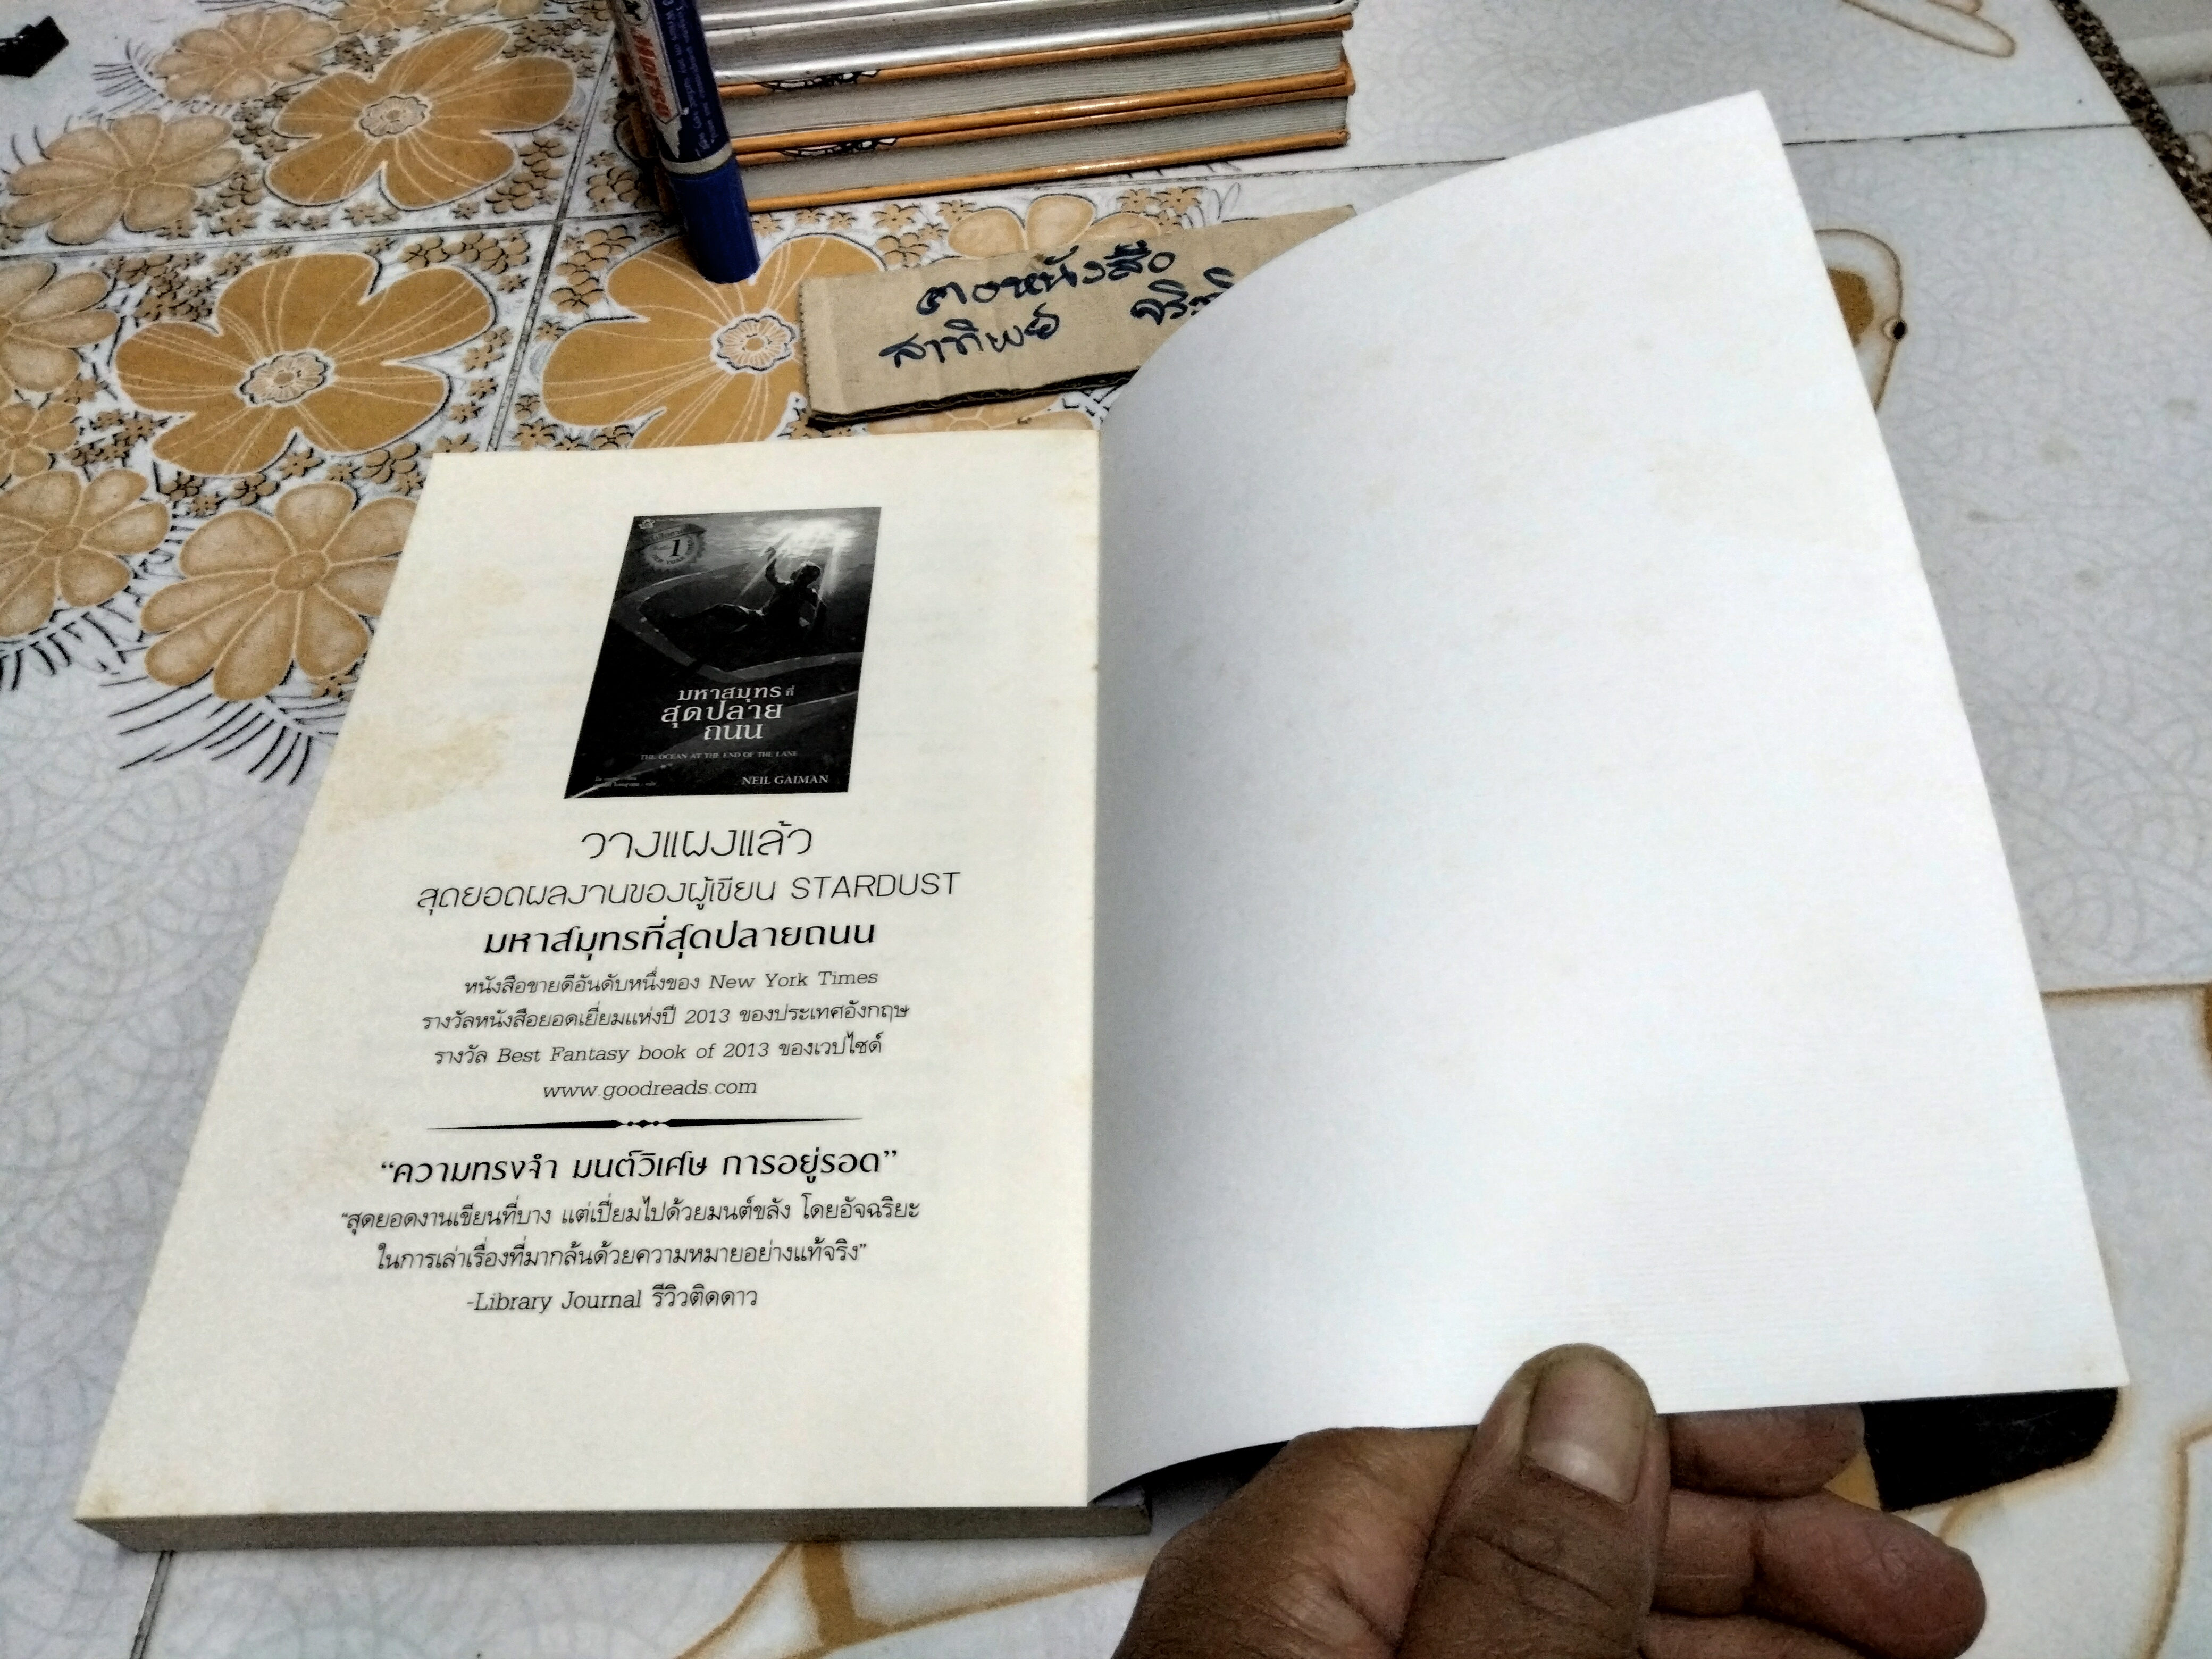 Horse
ฅนหนังสือ
สาทิพย์
1
มหาสมุทร ที่
สุดปลาย
ถนน
THE OCEAN AT THE END OF THE LANE
NEIL GAIMAN
วางแผงแล้ว
สุดยอดผลงานของผู้เขียน STARDUST
มหาสมุทรที่สุดปลายถนน
หนังสือขายดีอันดับหนึ่งของ New York Times
รางวัลหนังสือยอดเยี่ยมแห่งปี 2013 ของประเทศอังกฤษ
รางวัล Best Fantasy book of 2013 ของเวปไซด์
www.goodreads.com
“ความทรงจำ มนต์วิเศษ การอยู่รอด”
“สุดยอดงานเขียนที่บาง แต่เปี่ยมไปด้วยมนต์ขลัง โดยอัจฉริยะ
ในการเล่าเรื่องที่มากล้นด้วยความหมายอย่างแท้จริง”
-Library Journal รีวิวติดดาว